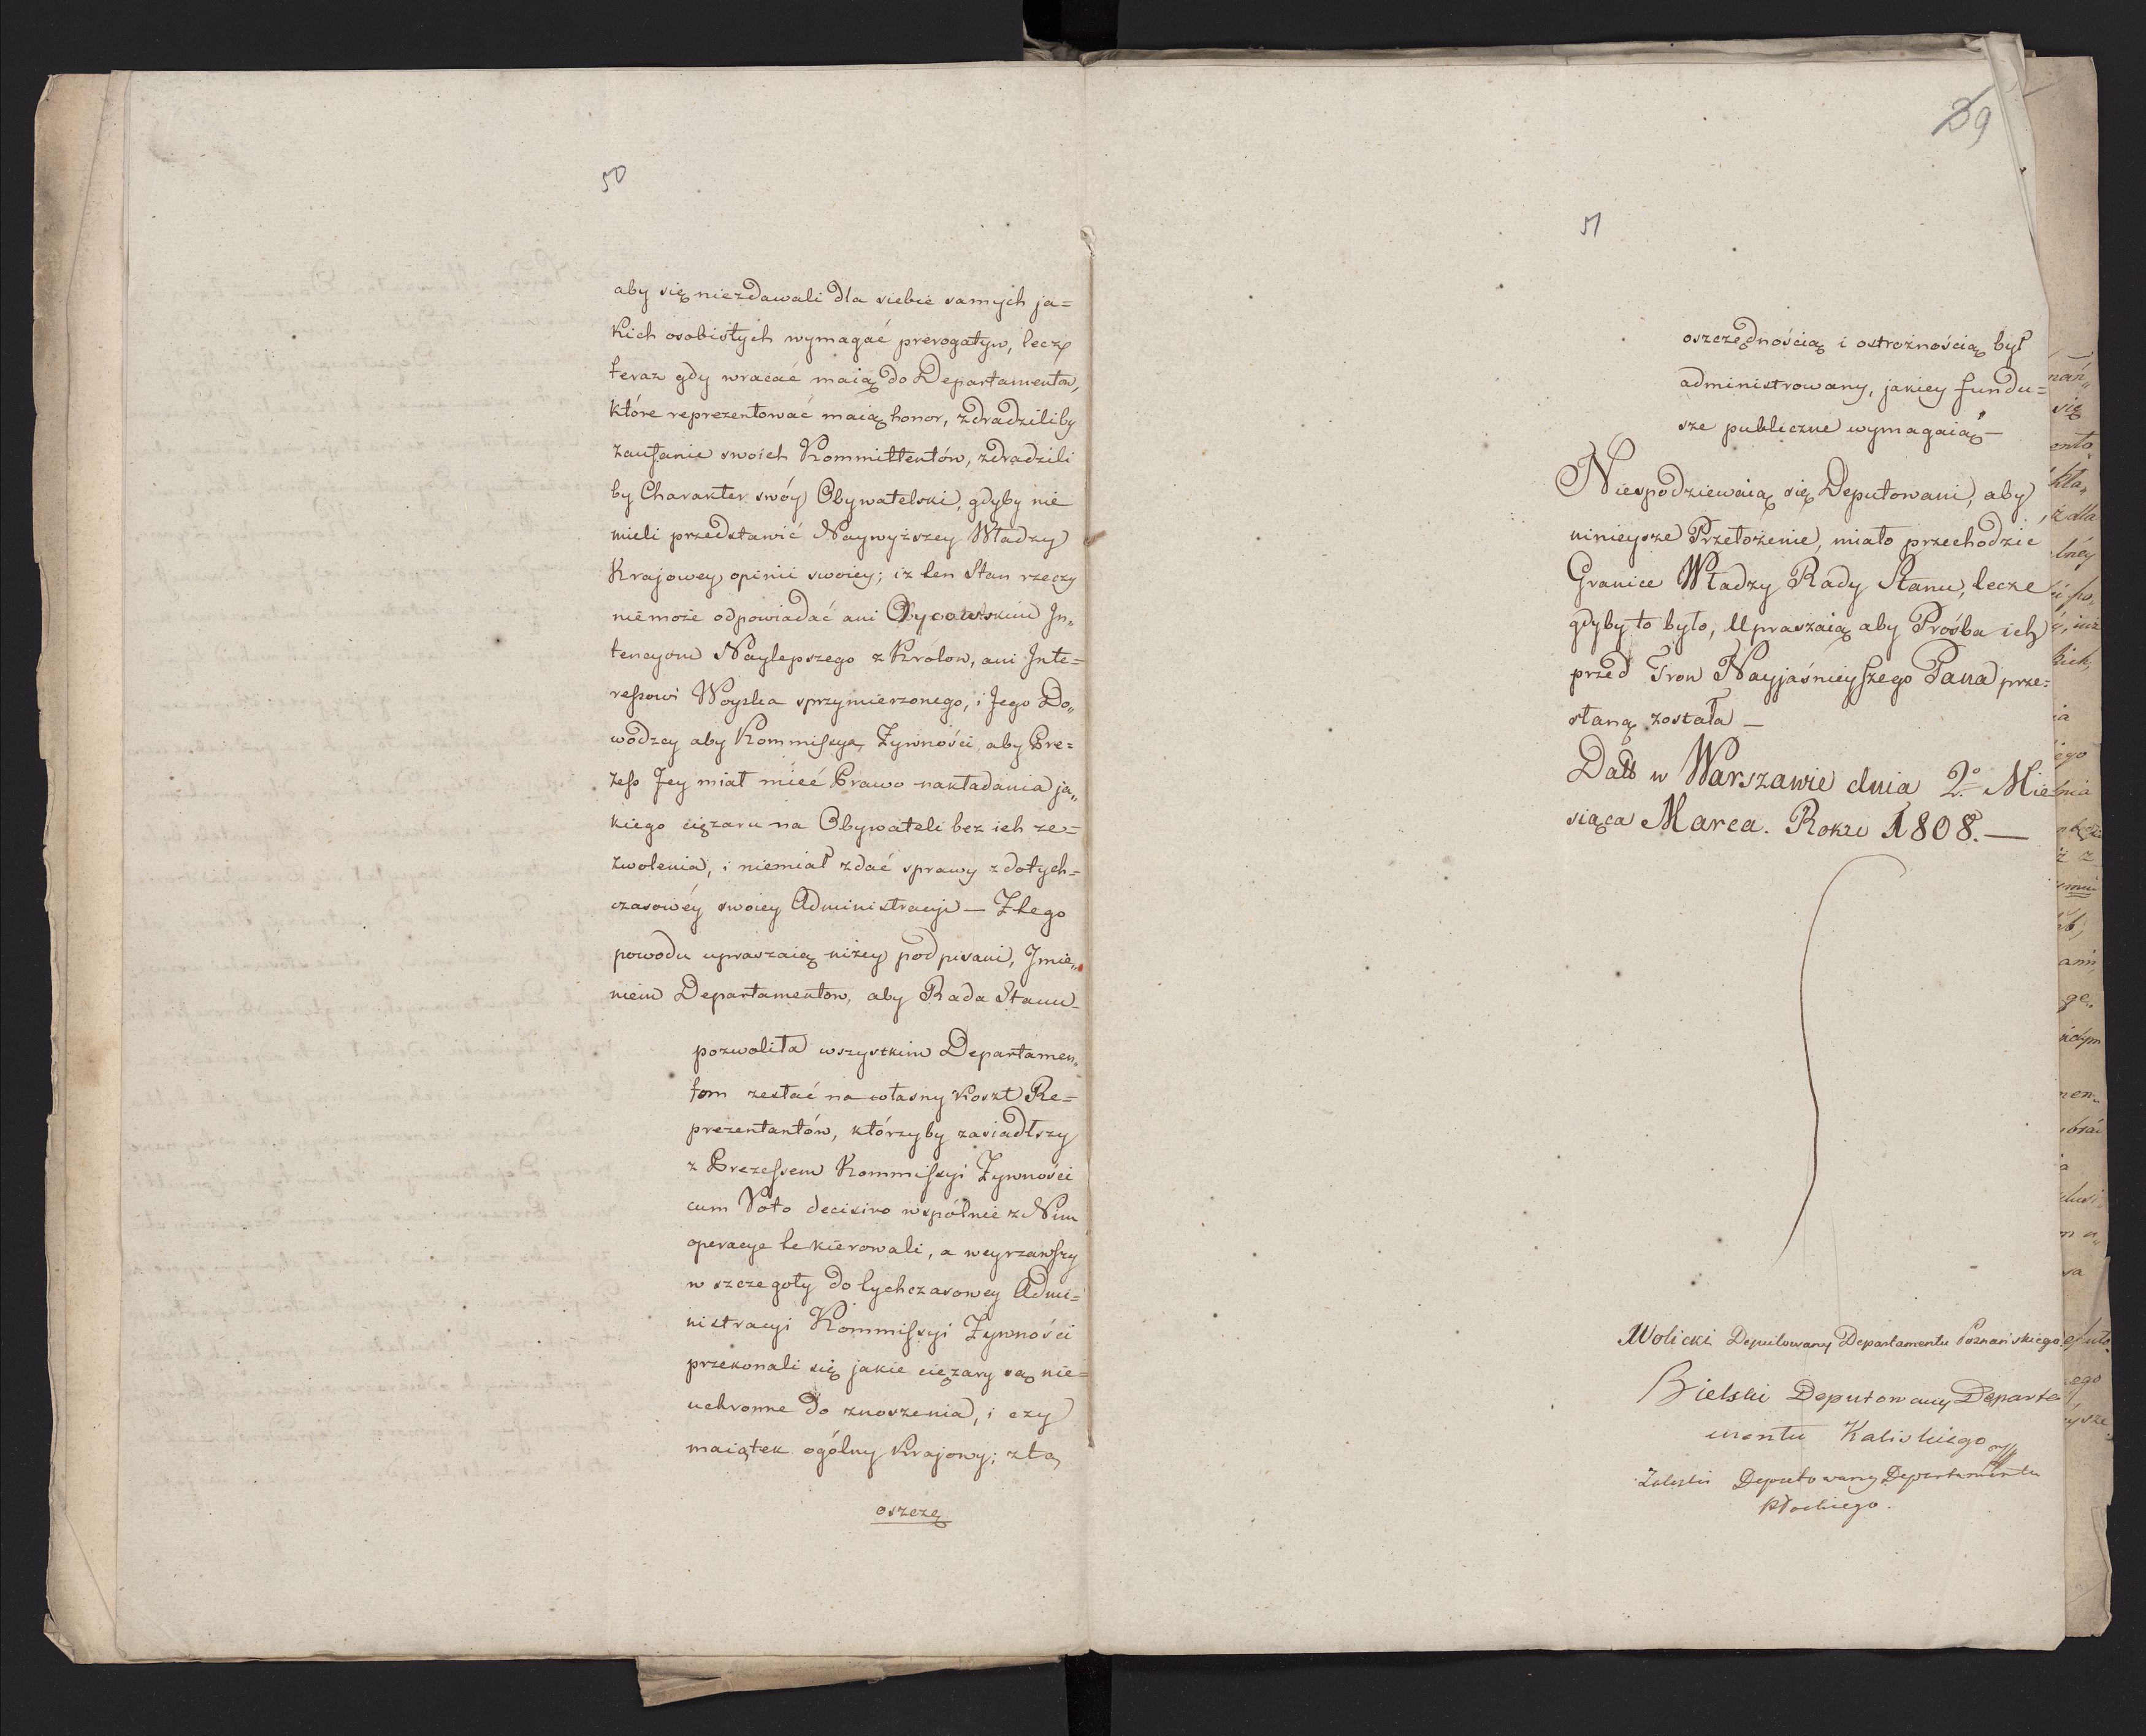 50
aby się niezdawali dla siebie samych ja=
kich osobistych wymagać prerogatyw, lecz
teraz gdy wracać maią do Departamentow,
które reprezentować maią honor, zdradziliby
zaufanie swoich Kommittentów, zdradzili
by Charakter swóy Obywatelski, gdyby nie
mieli przedstawić Naywyższey Władzy
Krajowey opinii swoiey; iż ten Stan rzeczy
niemoże odpowiadać ani Oycowskim In„
tencyom Naylepszego z Krolow, ani Inte=
ressowi Woyska sprzymierzonego, i Jego Do„
wodzcy aby Kommissya Żywności, aby Pre=
zess Jey miał mieć Prawo nakładania ja„
kiego ciężaru na Obywateli bez ich ze=
zwolenia, i niemiał zdać sprawy z dotych=
czasowéy swoiey Administracyi — Z tego
powodu upraszaią niżey podpisani, Jmie„
niem Departamentow, aby Rada Stanu
pozwoliła wszystkim Departamen„
tom zesłać na własny koszt Re=
prezentantów, którzyby zasiadłszy
z Prezessem Kommissyi Żywności
cum Voto decisivo wspólnie z Nim
operacye te kierowali, a weyrzawszy
w szczegoły dotychczasowey Admi=
nistracyi Kommissyi Żywności
przekonali się jakie ciężary są nie=
uchronne do znoszenia, i czy
maiątek ogólny Krajowy; z tą
oszczę
29
51
oszczędnością i ostrożnością był
administrowany, jakiey fundu=
sze publiczne wymagaią —
Niespodziewaią się Deputowani, aby
ninieysze Przełożenie, miało przechodzic
Granice Władzy Rady Stanu, lecz
gdyby to było, Upraszaią aby Prośba ich
przed Tron Nayjaśnieyszego Pana prze=
słaną została —
Datt w Warszawie dnia 2º Mie
siąca Marca. Roku 1808. —
Wolicki Deputowany Departamentu Poznańskiego.
Bielski Deputowany Departa
mentu Kaliskiego
Zaleski Deputowany Departamentu
Płockiego.